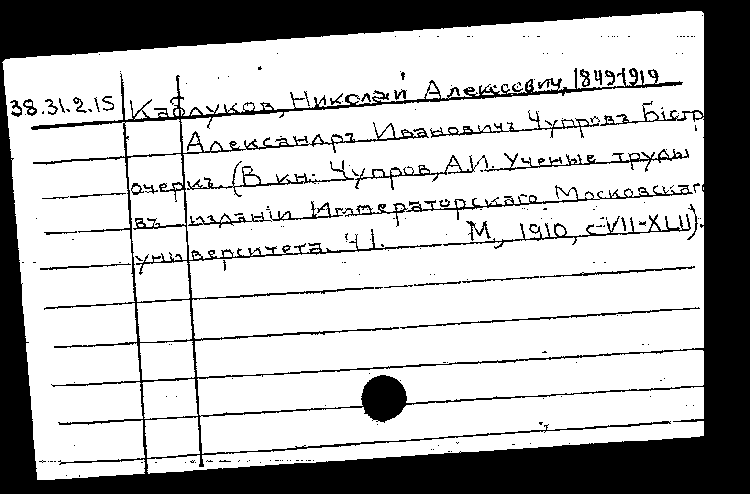 38.31.2.15 Каблуков, Николай Алексеевич, 1849-1919
Александръ Ивановичъ Чупровъ. Біогр.
очеркъ. (В кн: Чупров, А.И. Ученые труды
въ изданіи Императорскаго Московскаго
университета. Ч I. М., 1910, с VII-XLII).